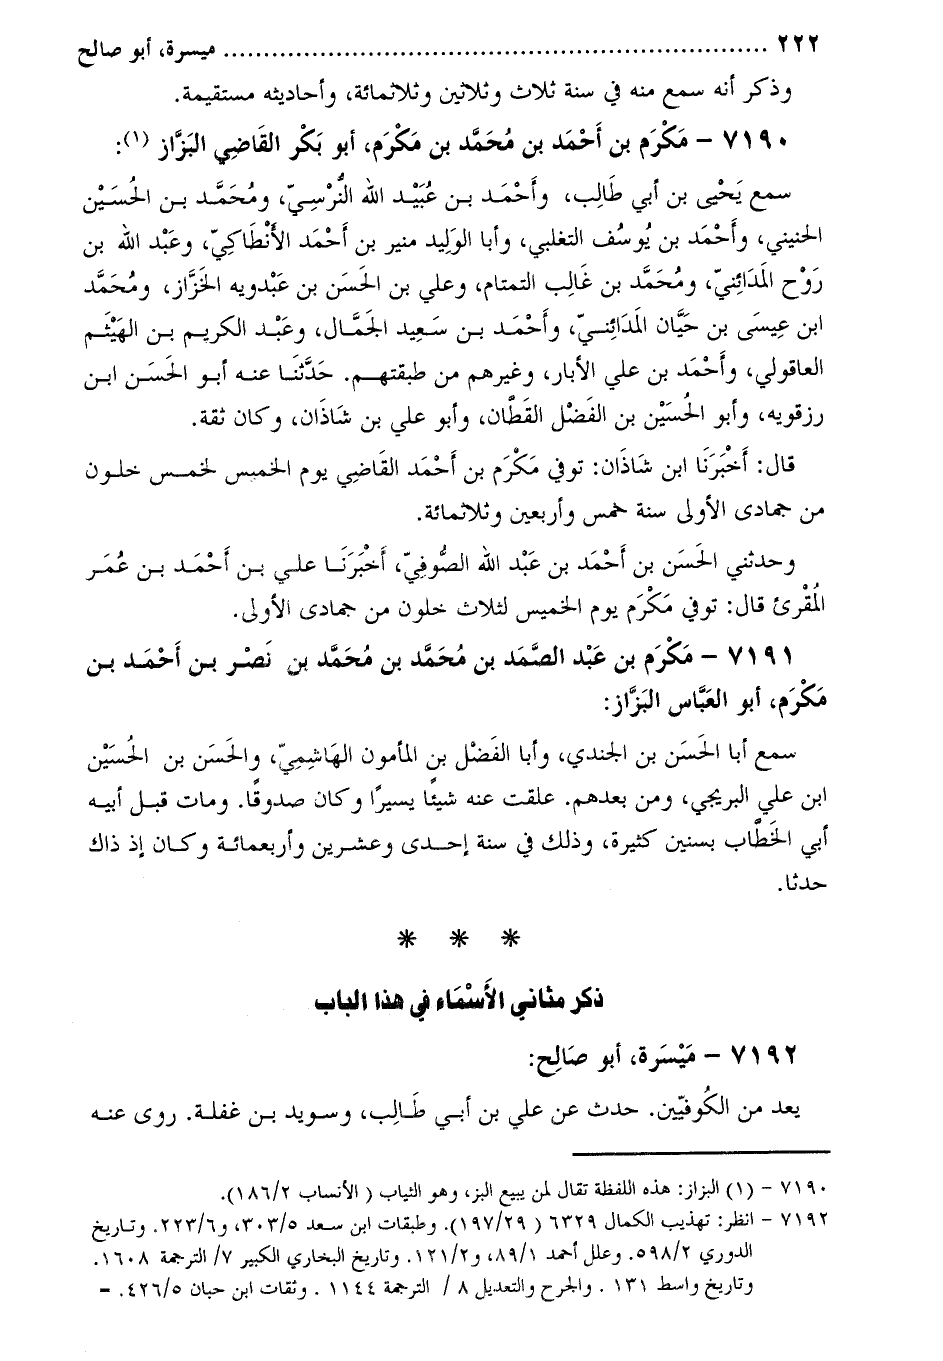 ٢٢٢ ........................................................ ميسرة، أبو صالح
وذكر أنه سمع منه في سنة ثلاث وثلاثين وثلاثمائة، وأحاديثه مستقيمة.
٧١٩٠ – مَكْرَم بن أَحْمَد بن مُحَمَّد بن مَكْرَم، أبو بَكْر القَاضِي البَزَّاز (١):
سمع يَحْيى بن أبي طَالِب، وأَحْمَد بن عُبَيْد الله النُّرْسِيّ، ومُحَمَّد بن الحُسَيْن
الحنيني، وأَحْمَد بن يُوسُف التغلبي، وأبا الوَلِيد منير بن أَحْمَد الأَنْطَاكِيّ، وعَبْد الله بن
رَوْح المَدَائِنيّ، ومُحَمَّد بن غَالِب التمتام، وعلي بن الحَسَن بن عَبْدويه الخَزَّاز، ومُحَمَّد
ابن عِيسَى بن حَيَّان المَدَائِنيّ، وأَحْمَد بن سَعِيد الجَمَّال، وعَبْد الكريم بن الهَيْثَم
العاقولي، وأَحْمَد بن علي الأبار، وغيرهم من طبقتهم. حَدَّثَنَا عنه أبو الحَسَن ابن
رزقويه، وأبو الحُسَيْن بن الفَضْل القَطَّان، وأبو علي بن شَاذَان، وكان ثقة.
قال: أَخْبَرَنَا ابن شَاذَان: توفي مَكْرَم بن أَحْمَد القَاضِي يوم الخميس لخمس خلون
من جمادى الأولى سنة خمس وأربعين وثلاثمائة.
وحدثني الحَسَن بن أَحْمَد بن عَبْد الله الصُّوفِيّ، أَخْبَرَنَا علي بن أَحْمَد بن عُمَر
المُقْرِئ قال: توفي مَكْرَم يوم الخميس لثلاث خلون من جمادى الأولى.
٧١٩١ – مَكْرَم بن عَبْد الصَّمَد بن مُحَمَّد بن مُحَمَّد بن نَصْر بن أَحْمَد بن
مَكْرَم، أبو العَبَّاس البَزَّاز:
سمع أبا الحَسَن بن الجندي، وأبا الفَضْل بن المأمون الهَاشِمِيّ، والحَسَن بن الحُسَيْن
ابن علي البريجي، ومن بعدهم. علقت عنه شيئًا يسيرًا وكان صدوقًا. ومات قبل أبيه
أبي الخَطَّاب بسنين كثيرة، وذلك في سنة إحدى وعشرين وأربعمائة وكان إذ ذاك
حدثا.
* * *
ذكر مثاني الأَسْمَاء في هذا الباب
٧١٩٢ – مَيْسَرَة، أبو صَالِح:
يعد من الكُوفيّين. حدث عن علي بن أبي طَالِب، وسويد بن غفلة. روى عنه
٧١٩٠ – (١) البزاز: هذه اللفظة تقال لمن يبيع البز، وهو الثياب ( الأنساب ١٨٦/٢).
٧١٩٢ – انظر: تهذيب الكمال ٦٣٢٩ ( ١٩٧/٢٩). وطبقات ابن سعد ٣٠٣/٥، و٢٢٣/٦. وتاريخ
الدوري ٥٩٨/٢. وعلل أحمد ٨٩/١، و١٢١/٢. وتاريخ البخاري الكبير ٧/ الترجمة ١٦٠٨.
وتاريخ واسط ١٣١ . والجرح والتعديل ٨ / الترجمة ١١٤٤ . وثقات ابن حبان ٤٢٦/٥. –